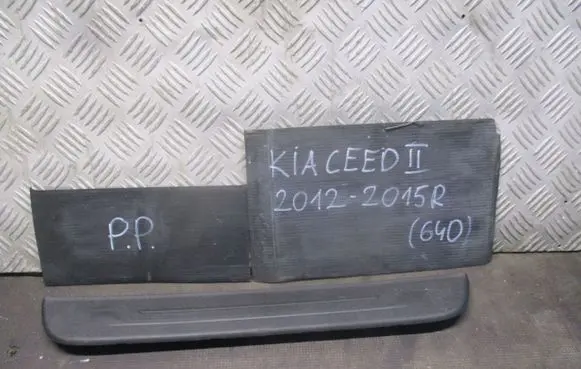 KIA CEED II
2012-2015R
(640)
P.P.